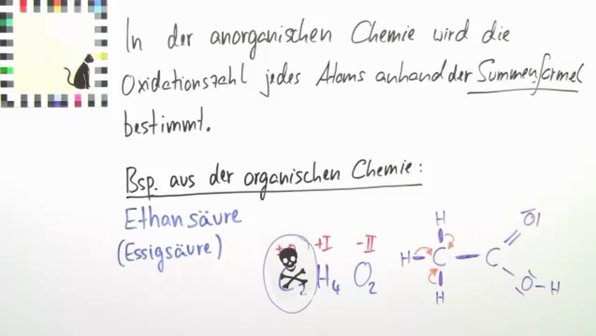 In der anorganischen Chemie wird die
Oxidationszahl jedes Atoms anhand der Summenformel
bestimmt.
Bsp. aus der organischen Chemie:
Ethansäure
(Essigsäure)
+I -II
C₂ H₄ O₂
H O
H C C
H O H